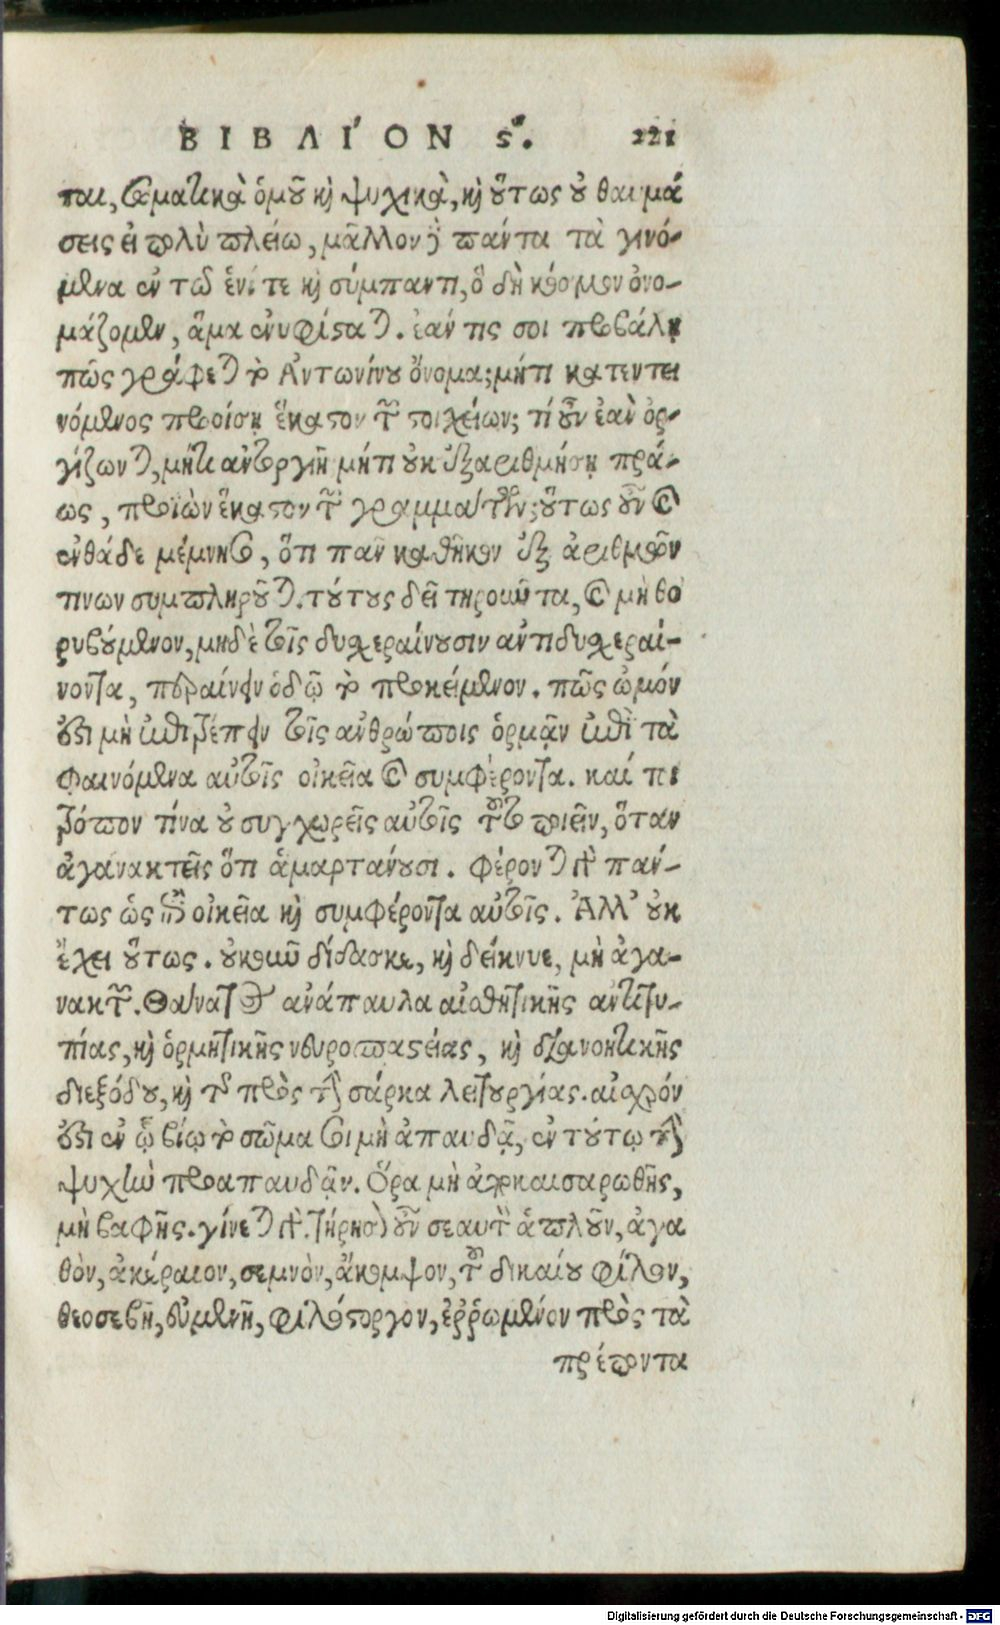 ΒΙΒΛΙ´ΟΝ ϛ'. 221
ται, σωματικὰ ὁμοῦ καὶ ψυχικὰ, καὶ οὕτως οὐ θαυμά
σεις εἰ πολὺ πλείω, μᾶλλον δὲ πάντα τὰ γινό-
μενα ἐν τῷ ἑνί τε καὶ σύμπαντι, ὃ δὴ κόσμον ὀνο-
μάζομεν, ἅμα ἐνυφίσταται. ἐάν τις σοι προβάλῃ
πῶς γράφεται τὸ Ἀντωνίνου ὄνομα; μήτι κατεντει
νόμενος προοίσῃ ἕκαστον τῶν στοιχείων; τί οὖν ἐὰν ὀρ-
γίζωνται, μήτι ἀντοργιῇ μήτι οὐκ ἐξαριθμήσῃ πρά-
ως, προϊὼν ἕκαστον τῶν γραμμάτων; οὕτως οὖν καὶ
ἐνθάδε μέμνησο, ὅτι πᾶν καθῆκον ἐξ ἀριθμῶν
τινων συμπληροῦται. τούτους δεῖ τηροῦντα, καὶ μὴ θο
ρυβούμενον, μηδὲ τοῖς δυσχεραίνουσιν ἀντιδυσχεραί-
νοντα, περαίνειν ὁδῷ τὸ προκείμενον. πῶς ὠμόν
ἐστι μὴ ἐπιτρέπειν τοῖς ἀνθρώποις ὁρμᾷν ἐπὶ τὰ
φαινόμενα αὐτοῖς οἰκεῖα καὶ συμφέροντα. καί τοι
τρόπον τίνα οὐ συγχωρεῖς αὐτοῖς τοῦτο ποιεῖν, ὅταν
ἀγανακτεῖς ὅτι ἁμαρτάνουσι. φέρονται γὰρ πάν-
τως ὡς ἐπὶ οἰκεῖα καὶ συμφέροντα αὐτοῖς. Ἀλλ' οὐκ
ἔχει οὕτως. οὐκοῦν δίδασκε, καὶ δείκνυε, μὴ ἀγα-
νακτῶν. Θάνατος ἀνάπαυλα αἰσθητικῆς ἀντιτυ-
πίας, καὶ ὁρμητικῆς νευροσπαστείας, καὶ διανοητικῆς
διεξόδου, καὶ τῆς πρὸς τὴν σάρκα λειτουργίας. αἰσχρόν
ἐστι ἐν ᾧ βίῳ τὸ σῶμα σοι μὴ ἀπαυδᾷ, ἐν τούτῳ τὴν
ψυχὴν προαπαυδᾷν. Ὅρα μὴ ἀποκαισαρωθῇς,
μὴ βαφῇς. γίνεται γάρ. τήρησον οὖν σεαυτὸν ἁπλοῦν, ἀγα
θὸν, ἀκέραιον, σεμνὸν, ἄκομψον, τοῦ δικαίου φίλον,
θεοσεβῆ, εὐμενῆ, φιλόστοργον, ἐῤῥωμένον πρὸς τὰ
πρέποντα
Digitalisierung gefördert durch die Deutsche Forschungsgemeinschaft - DFG